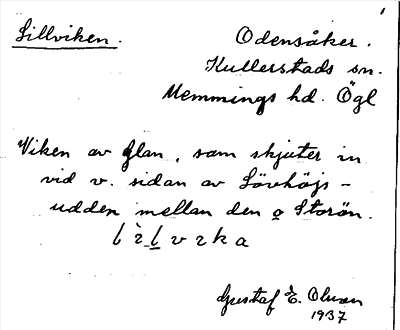 Lillviken.
Odensåker.
Kullerstads sn.
Memmings hd. Ögl
Viken av Glan, som skjuter in
vid v. sidan av Lövhöjs-
udden mellan den o Storön.
Gustaf E. Olsson
1937